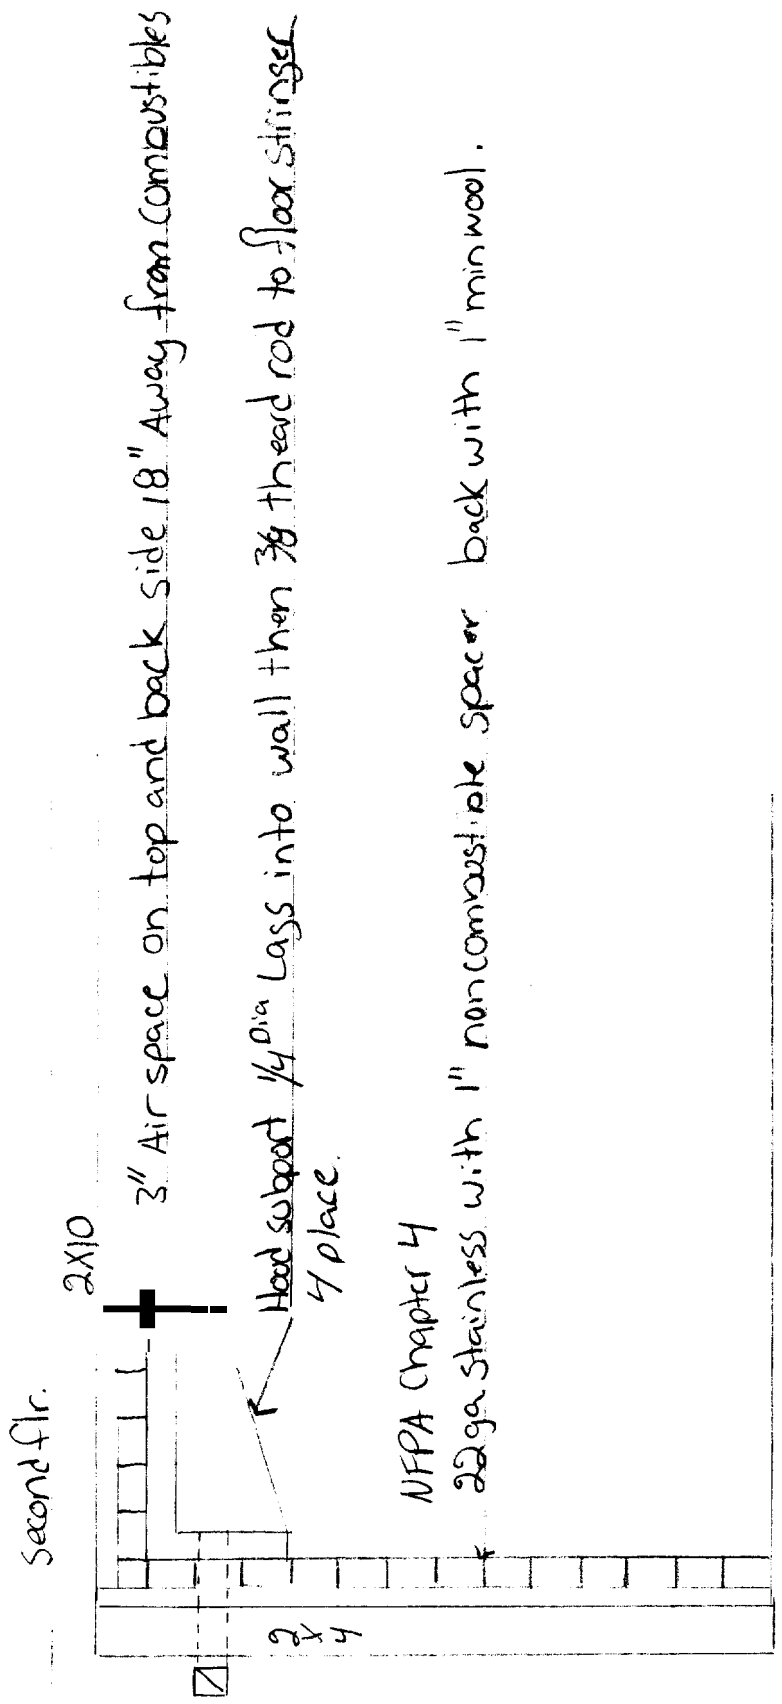 Second flr.
2X10
3" Air space on top and back side 18" Away from Combustibles
Hood support 1/4 Dia Lags into wall then 3/8 theard rod to floor stringer
4 place.
NFPA Chapter 4
22ga stainless with 1" noncombustible spacer back with 1" min wool.
2
X
4